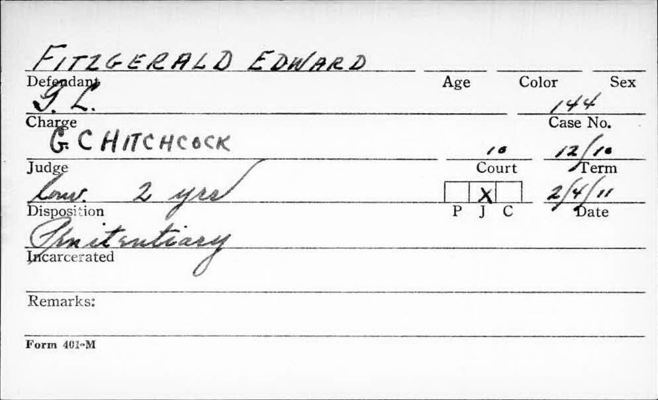 FITZGERALD EDWARD
Defendant Age Color Sex
G. L. 144
Charge Case No.
G C HITCHCOCK 10 12/10
Judge Court Term
Conv. 2 yrs X 2/4/11
Disposition P J C Date
Penitentiary
Incarcerated
Remarks:
Form 401-M